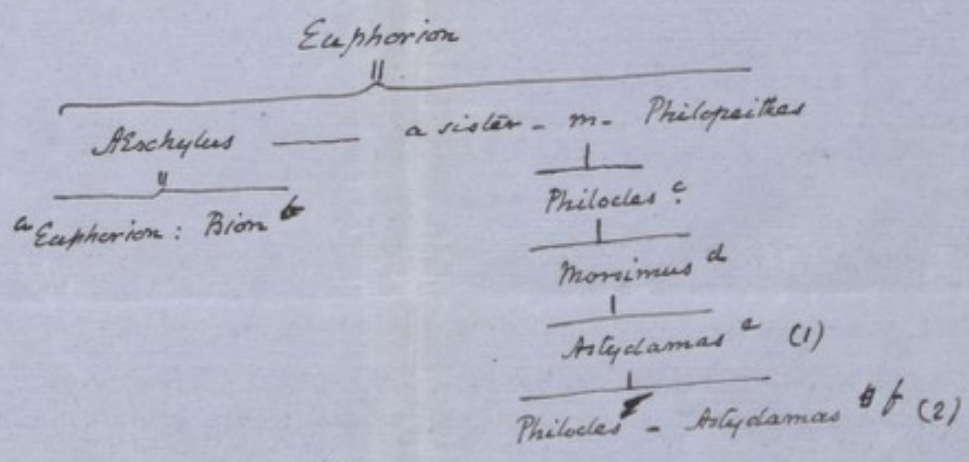 Euphorion
Æschylus — a sister - m - Philopeithes
a Euphorion : Bion b
Philocles c.
Morsimus d
Astydamas e (1)
Philocles - Astydamas f (2)